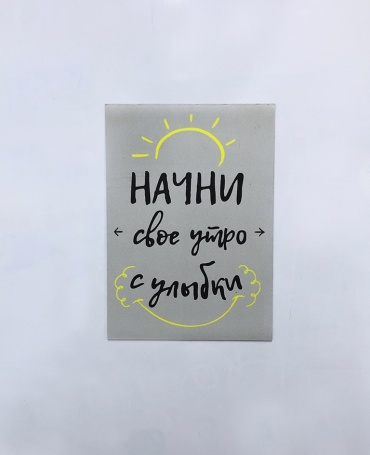 НАЧНИ
свое утро
с улыбки